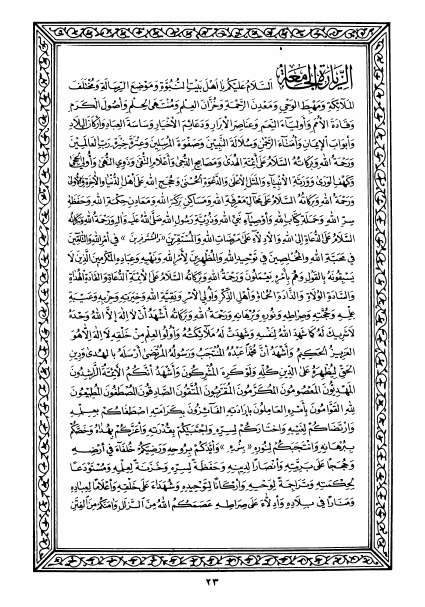 الزيارة الجامعة السلام عليكم يا اهل بيت النبوة وموضع الرسالة ومختلف
الملائكة ومهبط الوحي ومعدن الرحمة وخزان العلم ومنتهى الحلم واصول الكرم
وقادة الامم واولياء النعم وعناصر الابرار ودعائم الاخيار وساسة العباد واركان البلاد
وابواب الايمان وامناء الرحمن وسلالة النبيين وصفوة المرسلين وعترة خيرة رب العالمين
ورحمة الله وبركاته السلام على ائمة الهدى ومصابيح الدجى واعلام التقى وذوي النهى واولي الحجى
وكهف الورى وورثة الانبياء والمثل الاعلى والدعوة الحسنى وحجج الله على اهل الدنيا والاخرة والاولى
ورحمة الله وبركاته السلام على محال معرفة الله ومساكن بركة الله ومعادن حكمة الله وحفظة
سر الله وحملة كتاب الله واوصياء نبي الله وذرية رسول الله صلى الله عليه واله ورحمة الله وبركاته
السلام على الدعاة الى الله والادلاء على مرضات الله والمستقرين «والمستوفرين» في امر الله والتامين
في محبة الله والمخلصين في توحيد الله والمظهرين لامر الله ونهيه وعباده المكرمين الذين لا
يسبقونه بالقول وهم بامره يعملون ورحمة الله وبركاته السلام على الائمة الدعاة والقادة الهداة
والسادة الولاة والذادة الحماة واهل الذكر واولي الامر وبقية الله وخيرته وحزبه وعيبة
علمه وحجته وصراطه ونوره وبرهانه ورحمة الله وبركاته اشهد ان لا اله الا الله وحده
لا شريك له كما شهد الله لنفسه وشهدت له ملائكته واولوا العلم من خلقه لا اله الا هو
العزيز الحكيم واشهد ان محمدا عبده المنتجب ورسوله المرتضى ارسله بالهدى ودين
الحق ليظهره على الدين كله ولو كره المشركون واشهد انكم الائمة الراشدون
المهديون المعصومون المكرمون المقربون المتقون الصادقون المصطفون المطيعون
لله القوامون بامره العاملون بارادته الفائزون بكرامته اصطفاكم بعلمه
وارتضاكم لغيبه واختاركم لسره واجتباكم بقدرته واعزكم بهداه وخصكم
ببرهانه وانتجبكم لنوره «بنوره» وايدكم بروحه ورضيكم خلفاء في ارضه
وحججا على بريته وانصارا لدينه وحفظة لسره وخزنة لعلمه ومستودعا
لحكمته وتراجمة لوحيه واركانا لتوحيده وشهداء على خلقه واعلاما لعباده
ومنارا في بلاده وادلاء على صراطه عصمكم الله من الزلل وامنكم من الفتن
٢٣